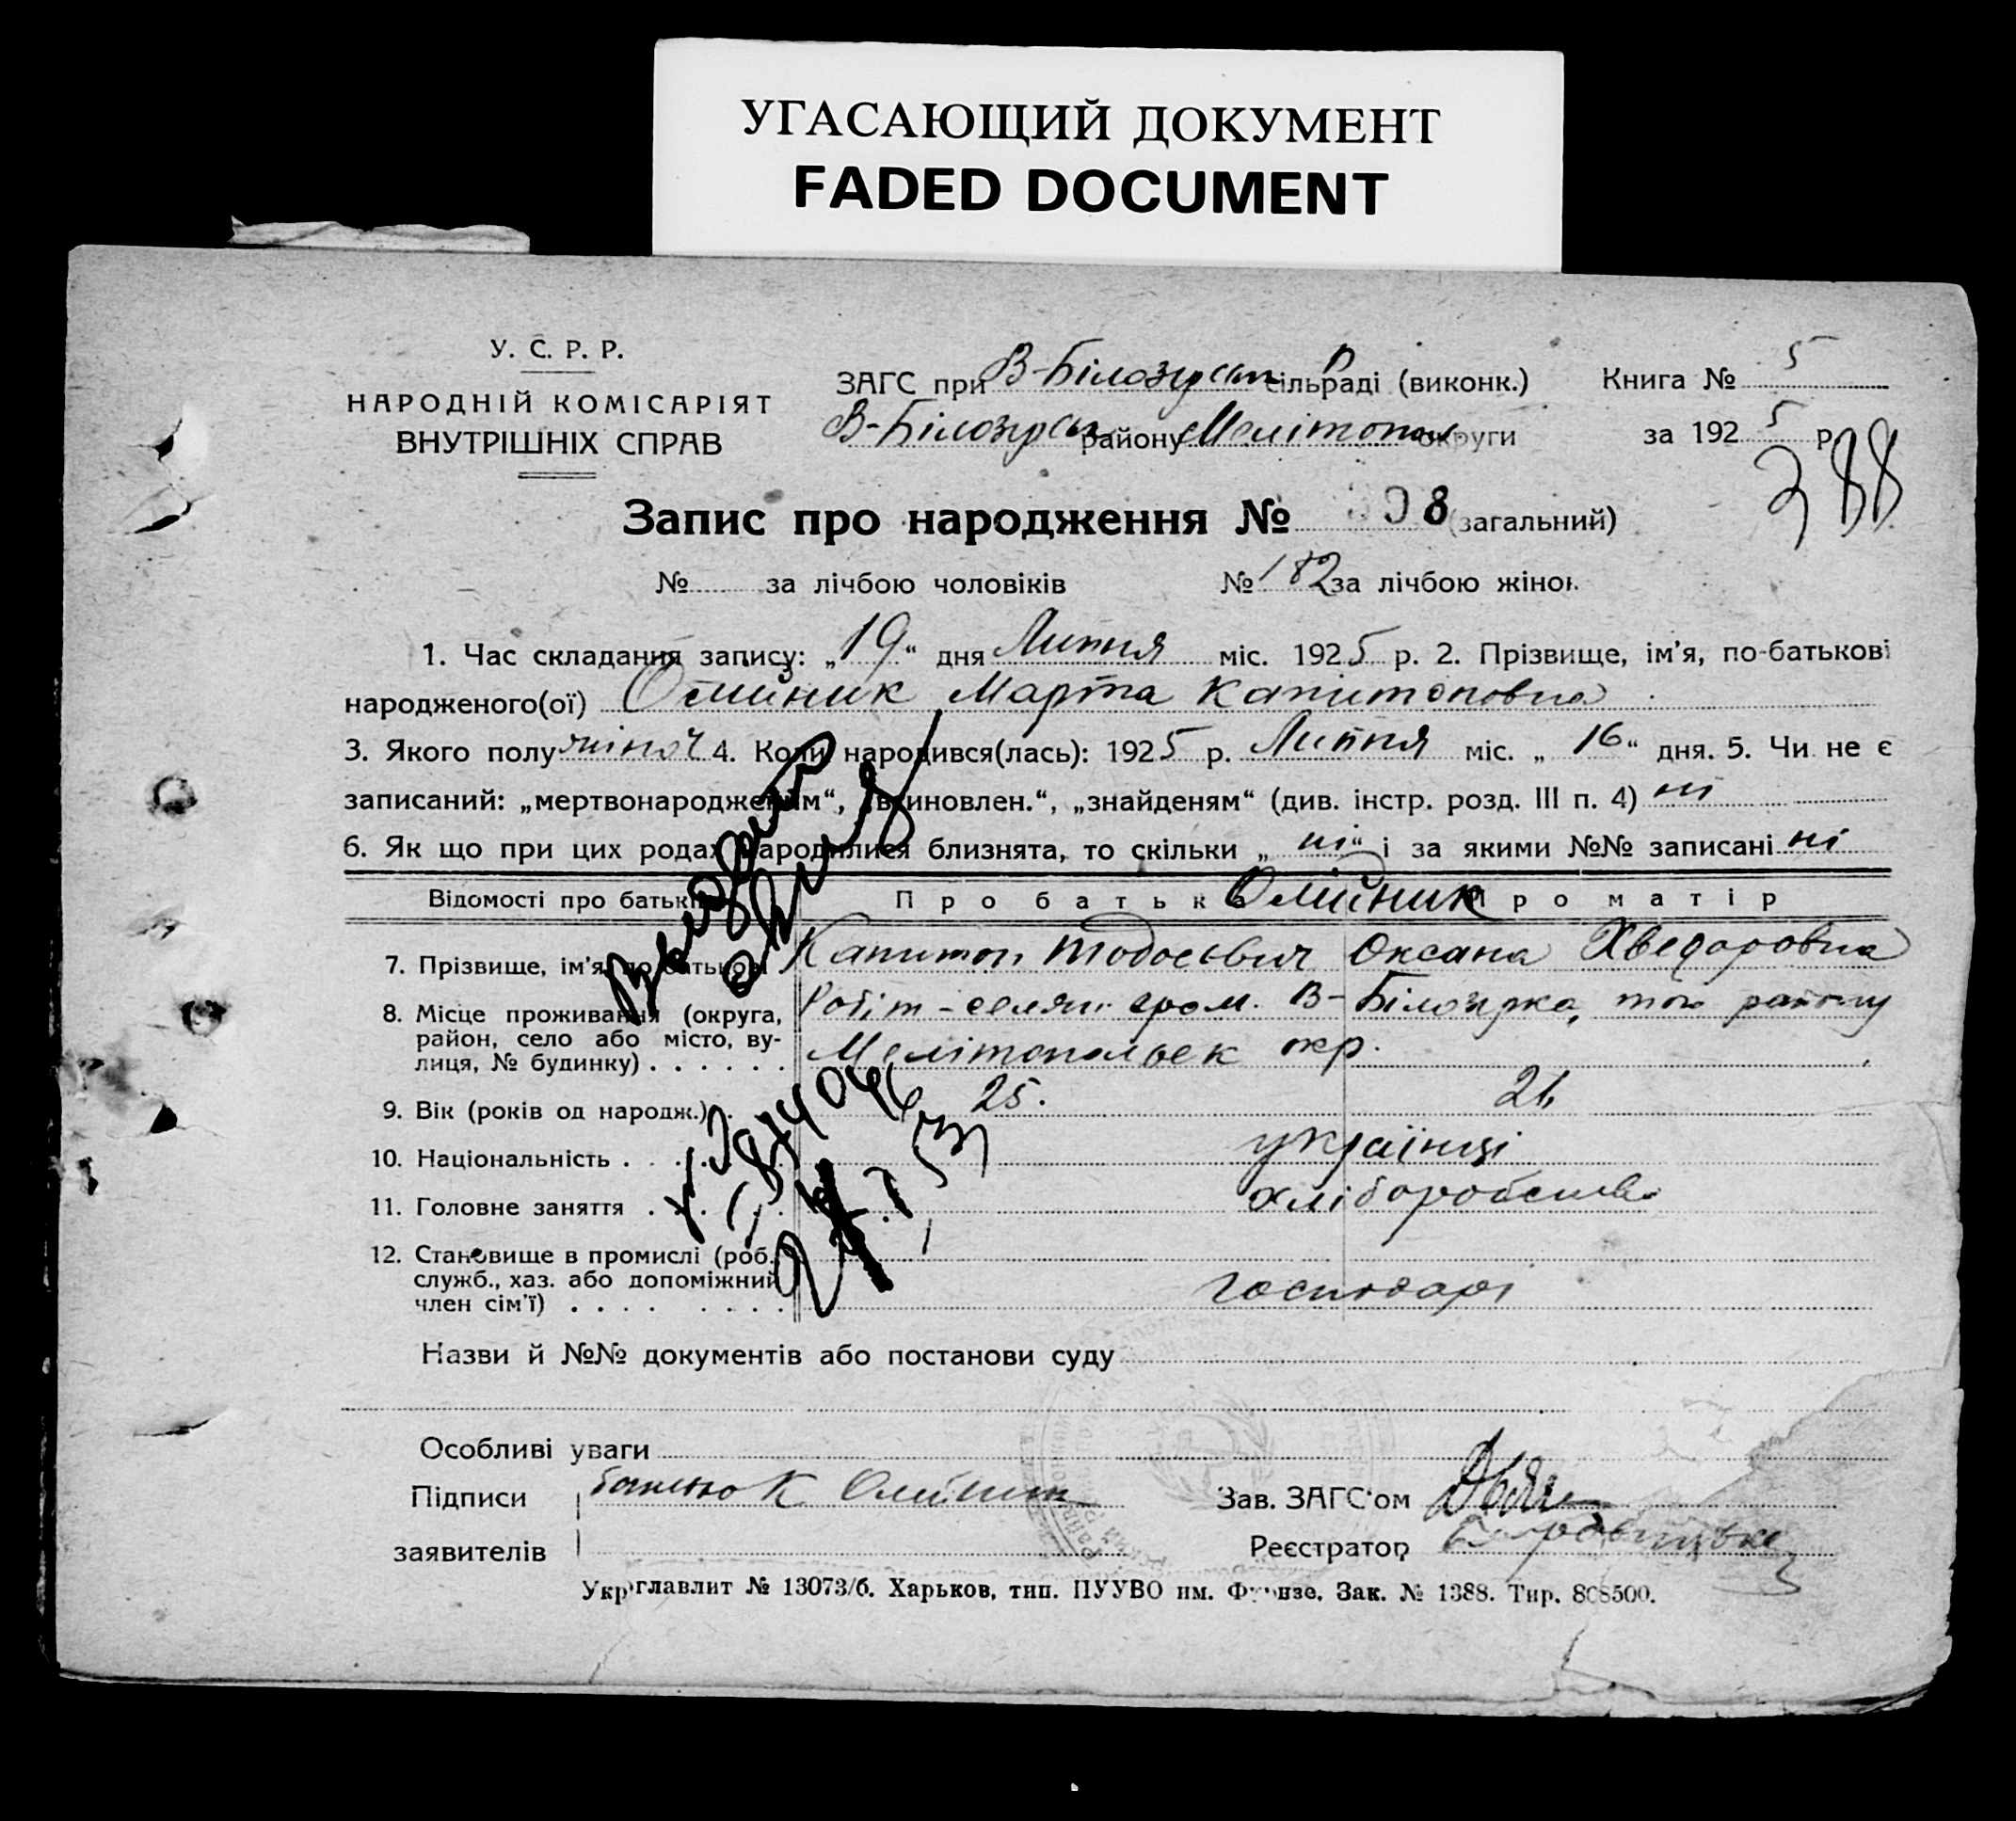 УГАСАЮЩИЙ ДОКУМЕНТ
FADED DOCUMENT
У. С. Р. Р.
НАРОДНІЙ КОМІСАРІЯТ
ВНУТРІШНІХ СПРАВ
ЗАГС при В-Білозірськ сільраді (виконк.) Книга № 5
В-Білозірськ району Мелітопол округи за 1925 р.
388
Запис про народження № 8 (загальний)
№ за лічбою чоловіків № 182 за лічбою жінок
1. Час складання запису: „19“ дня Липня міс. 1925 р. 2. Прізвище, ім’я, по-батькові
народженого(ої) Олійник Марта Капитоновна
3. Якого полу жіноч 4. Коли народився(лась): 1925 р. Липня міс. „16“ дня. 5. Чи не є
записаний: „мертвонародженим“, „всиновлен.“, „знайденям“ (див. інстр. розд. III п. 4) ні
6. Як що при цих родах народилися близнята, то скільки „ні“ і за якими №№ записані ні
Відомості про батьків Про батька Олійник Про матір
7. Прізвище, ім’я, по батькові Капитон Тодосьвич Оксана Хведоровна
8. Місце проживання (округа, Робіт-селян гром. В-Білозірка, того району
район, село або місто, ву- Мелітопольск окр.
лиця, № будинку)......
9. Вік (років од народж.). 25. 21
10. Національність . українці
11. Головне заняття . хліборобств
12. Становище в промислі (роб.
служб., хаз. або допоміжний господарі
член сім’ї) ....
Назви й №№ документів або постанови суду
Особливі уваги
Підписи батько К Олійник Зав. ЗАГС’ом
заявителів Реєстратор
Укрглавлит № 13073/б. Харьков, тип. ПУУВО им. Фрунзе. Зак. № 1388. Тир. 808500.